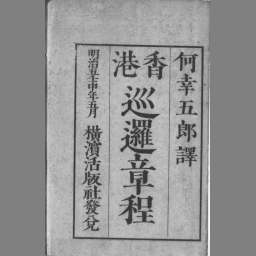 何幸五郎譯
香港
巡邏章程
明治五壬申年五月
橫濱活版社發兌